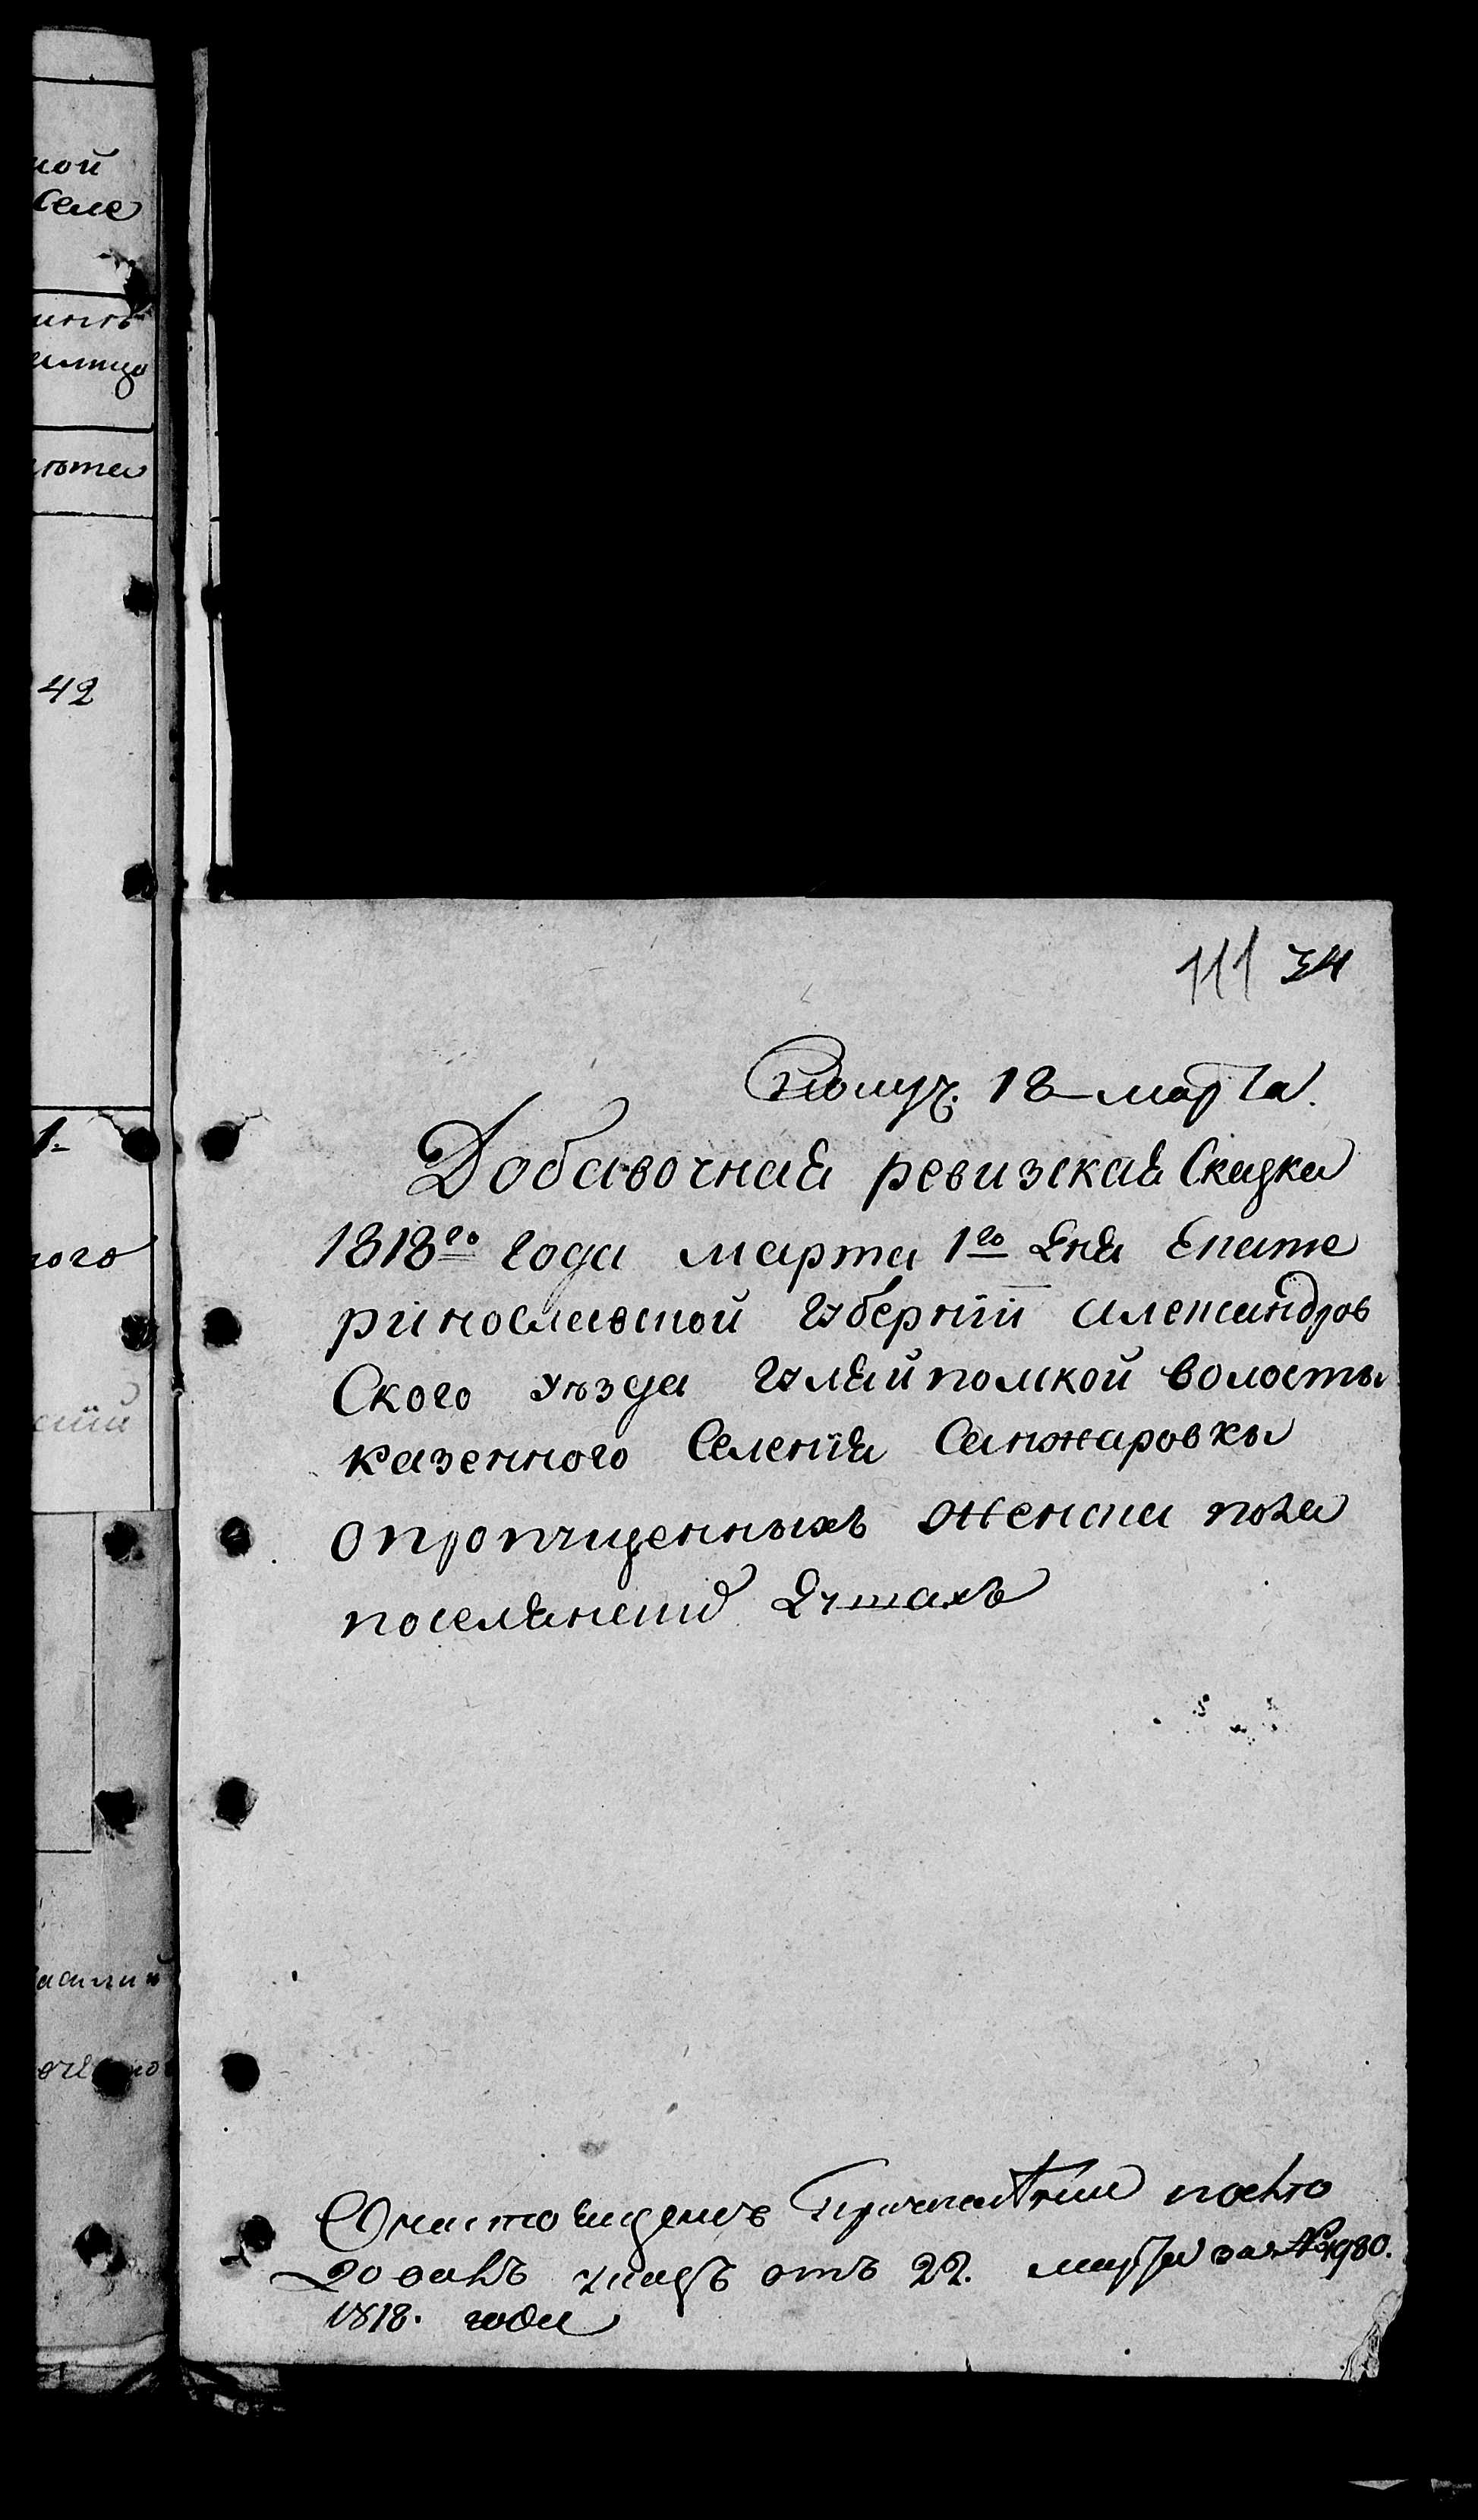 ной
селе
42
1.
ного
111 34
Получ. 18 марта.
Добавочная ревизская Скаска
1818го Года марта 1го дня Екате
ринославской губернїи александров
Ского уѣзда гуляйполской волости
казенного Селенїя Санжаровки
о пропущенныхъ женска пола
поселянски душахъ
О настоящемъ
данъ указъ отъ 22. марта за № 1980.
1818. года